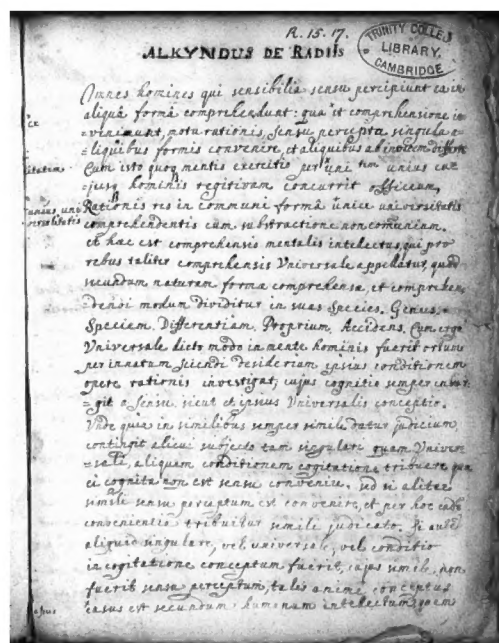 R. 15. 17.
TRINITY COLLEGE
LIBRARY
CAMBRIDGE
ALKYNDUS DE RADIIS
Omnes homines qui sensibilia sensu percipiunt ea in
aliquâ formâ comprehendunt: quâ et comprehensione in
=veniunt, motu rationis, sensu percepta singula a=
=liquibus formis convenire, et aliquibus ab invicem differre
Cum isto quoq mentis exercitio unius cu=
jusq hominis regitivam concurrit officium,
Rationis res in communi formâ unice universitatis
comprehendentis cum substractione non communium.
et hæc est comprehensio mentalis intelectus, qui pro
rebus taliter comprehensis Universale appellatur, quod
secundum naturam formæ comprehensæ, et comprehen
dendi modum dividitur in suas Species. Genus,
Speciem, Differentiam, Proprium, Accidens. Cum ergo
Universale dicto modo in mente hominis fuerit ortum
per innatum sciendi desiderium ipsius conditionem
opere rationis investigat, cujus cognitio semper
=git a sensu. sicut et ipsius Universalis conceptio.
Unde quia in similibus semper simile datur judicium,
contingit alicui subjecto tam singulari quam Univer=
=sali, aliquam conditionem cogitatione tribuere
ei cognita non est sensu convenire. sed si
simili sensu perceptum est convenire, et per hoc
convenientio tribuitur simile judicato. Si
aliquid singulare, vel universale, vel conditio
in cogitatione conceptum fuerit, cujus simile non
fuerit sensu perceptum, talis animi conceptus
casus est secundum humanam intellectum, quem